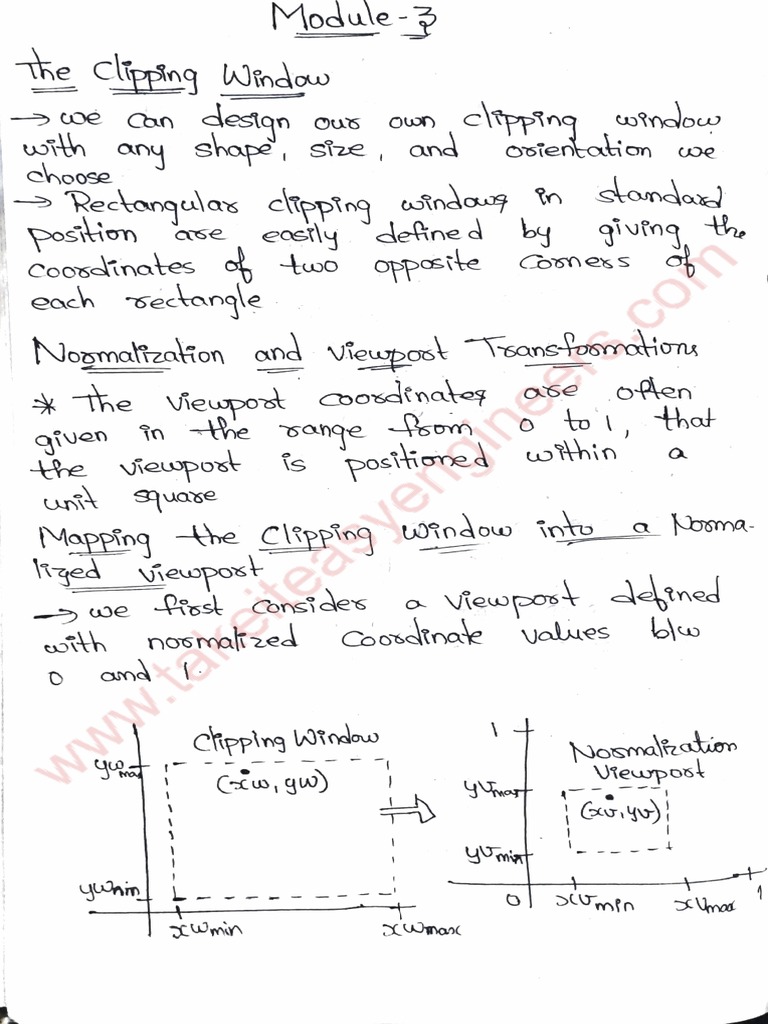 Module-3
The Clipping Window
→ we can design our own clipping window
with any shape, size, and orientation we
choose
→ Rectangular clipping windows in standard
position are easily defined by giving the
coordinates of two opposite corners of
each rectangle
Normalization and viewport Transformations
* The viewport coordinates are often
given in the range from 0 to 1, that
the viewport is positioned within a
unit square
Mapping the Clipping Window into a Norma-
lized viewport
→ we first consider a viewport defined
with normalized coordinate values b/w
0 and 1.
Clipping Window
ywmax
(xw, yw)
ywmin
xwmin
xwmax
1
Normalization
Viewport
yvmax
(xv, yv)
yvmin
0
xvmin
xvmax
1
www.takeiteasyengineers.com